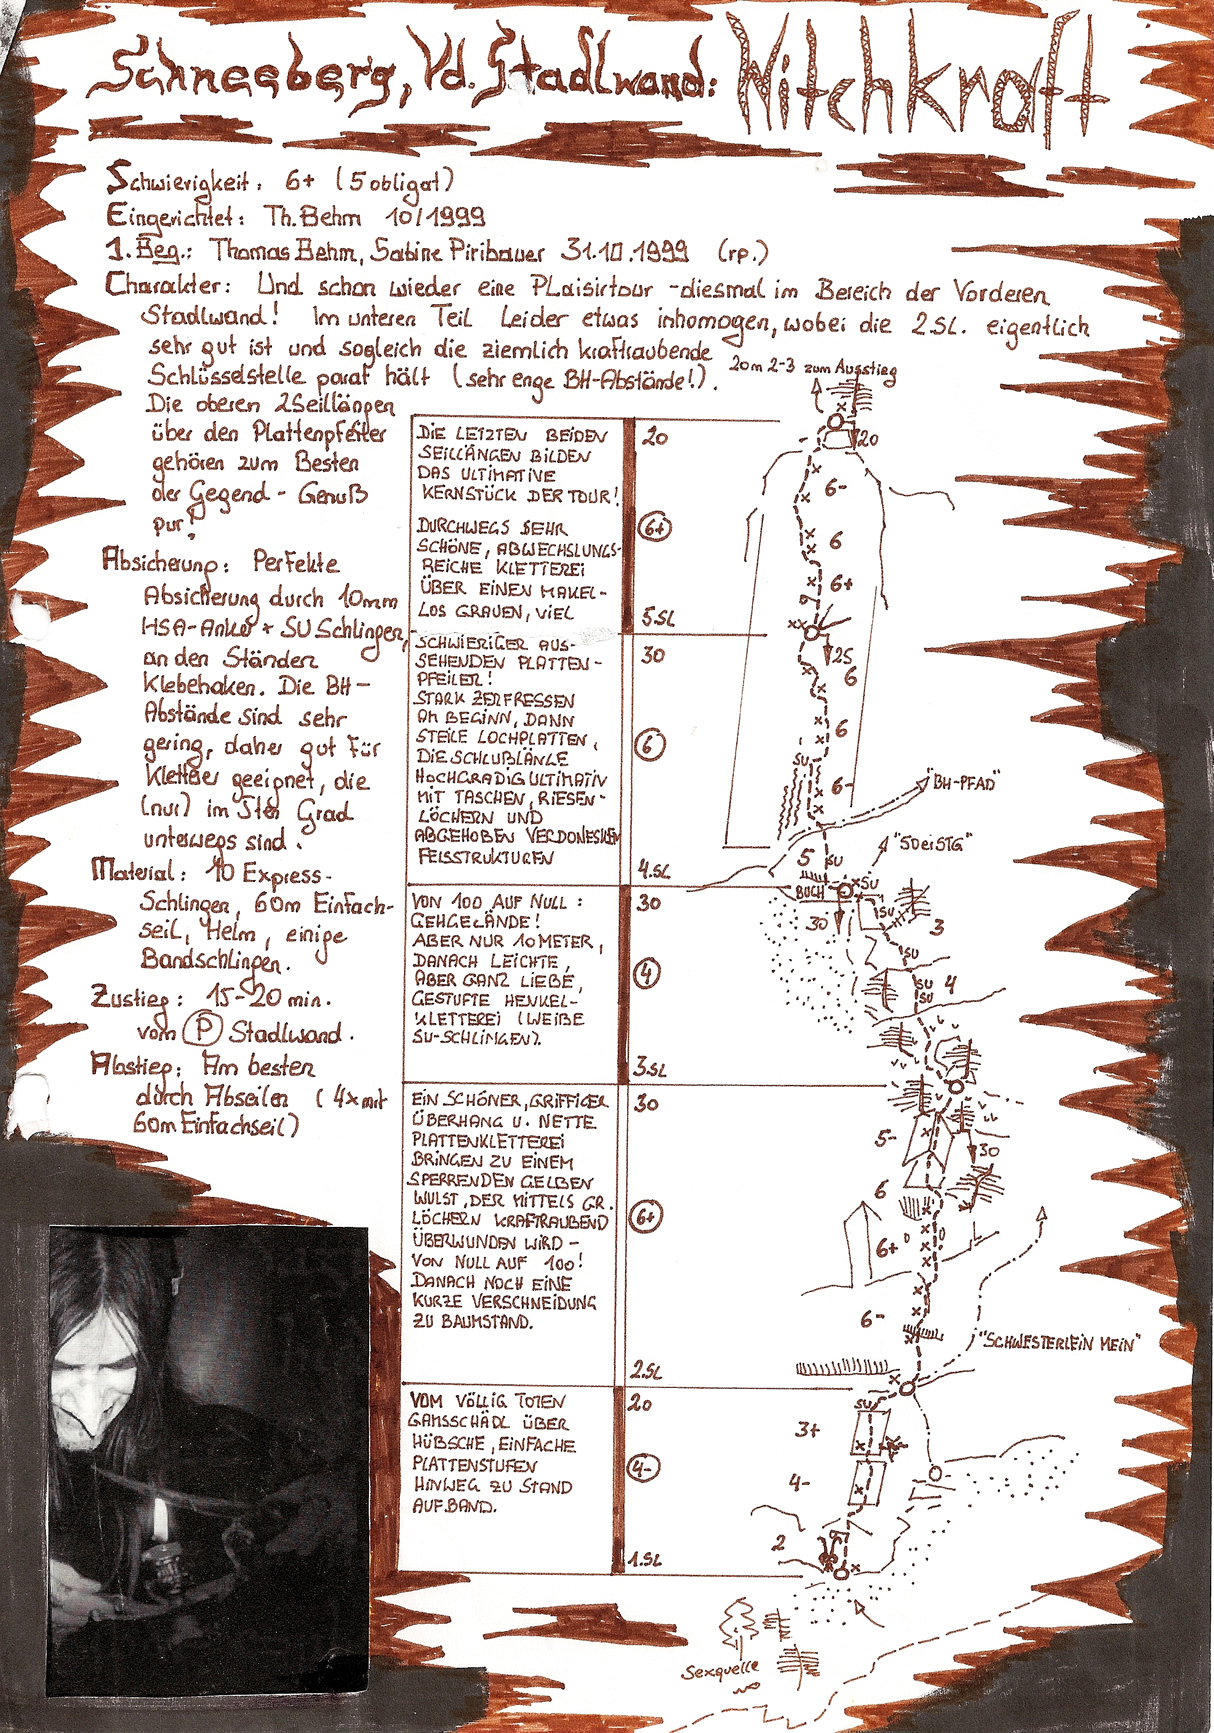 Schneeberg, Vd. Stadlwand: Witchkraft
Schwierigkeit: 6+ (5 obligat)
Eingerichtet: Th. Behm 10/1999
1. Beg.: Thomas Behm, Sabine Piribauer 31.10.1999 (rp.)
Charakter: Und schon wieder eine Plaisirtour - diesmal im Bereich der Vorderen
Stadlwand! Im unteren Teil leider etwas inhomogen, wobei die 2.SL. eigentlich
sehr gut ist und sogleich die ziemlich kraftraubende
Schlüsselstelle parat hält (sehr enge BH-Abstände!).
Die oberen 2 Seillängen
über den Plattenpfeiler
gehören zum Besten
der Gegend - Genuß
pur!
Absicherung: Perfekte
Absicherung durch 10mm
HSA-Anker + SU Schlingen,
an den Ständen
Klebehaken. Die BH-
Abstände sind sehr
gering, daher gut für
Kletterer geeignet, die
(nur) im 5ten Grad
unterwegs sind.
Material: 10 Express-
Schlingen, 60m Einfach-
seil, Helm, einige
Bandschlingen.
Zustieg: 15-20 min.
vom P Stadlwand.
Abstieg: Am besten
durch Abseilen (4x mit
60m Einfachseil)
DIE LETZTEN BEIDEN
SEILLÄNGEN BILDEN
DAS ULTIMATIVE
KERNSTÜCK DER TOUR!
DURCHWEGS SEHR
SCHÖNE, ABWECHSLUNGS-
REICHE KLETTEREI
ÜBER EINEN MAKEL-
LOS GRAUEN, VIEL
SCHWIERIGER AUS-
SEHENDEN PLATTEN-
PFEILER!
STARK ZERFRESSEN
AM BEGINN, DANN
STEILE LOCHPLATTEN,
DIE SCHLUßLÄNGE
HOCHGRADIG ULTIMATIV
MIT TASCHEN, RIESEN-
LÖCHERN UND
ABGEHOBEN VERDONESKEN
FELSSTRUKTUREN
VON 100 AUF NULL:
GEHGELÄNDE!
ABER NUR 10 METER,
DANACH LEICHTE,
ABER GANZ LIEBE,
GESTUFTE HENKEL-
KLETTEREI (WEIßE
SU-SCHLINGEN).
EIN SCHÖNER, GRIFFIGER
ÜBERHANG U. NETTE
PLATTENKLETTEREI
BRINGEN ZU EINEM
SPERRENDEN GELBEN
WULST, DER MITTELS GR.
LÖCHERN KRAFTRAUBEND
ÜBERWUNDEN WIRD -
VON NULL AUF 100!
DANACH NOCH EINE
KURZE VERSCHNEIDUNG
ZU BAUMSTAND.
VOM VÖLLIG TOTEN
GAMSSCHÄDL ÜBER
HÜBSCHE, EINFACHE
PLATTENSTUFEN
HINWEG ZU STAND
AUF BAND.
20
6+
5.SL
30
6
4.SL
30
4
3.SL
30
6+
2.SL
20
4-
1.SL
20m 2-3 zum Ausstieg
20
6-
6
6+
25
6
6
SU
6-
"BH-PFAD"
5
SU
"SOEISTG"
BUCH
SU
30
SU
3
SU
4
SU
SU
5-
30
6
6+
6-
"SCHWESTERLEIN MEIN"
SU
3+
4-
2
Sexquelle